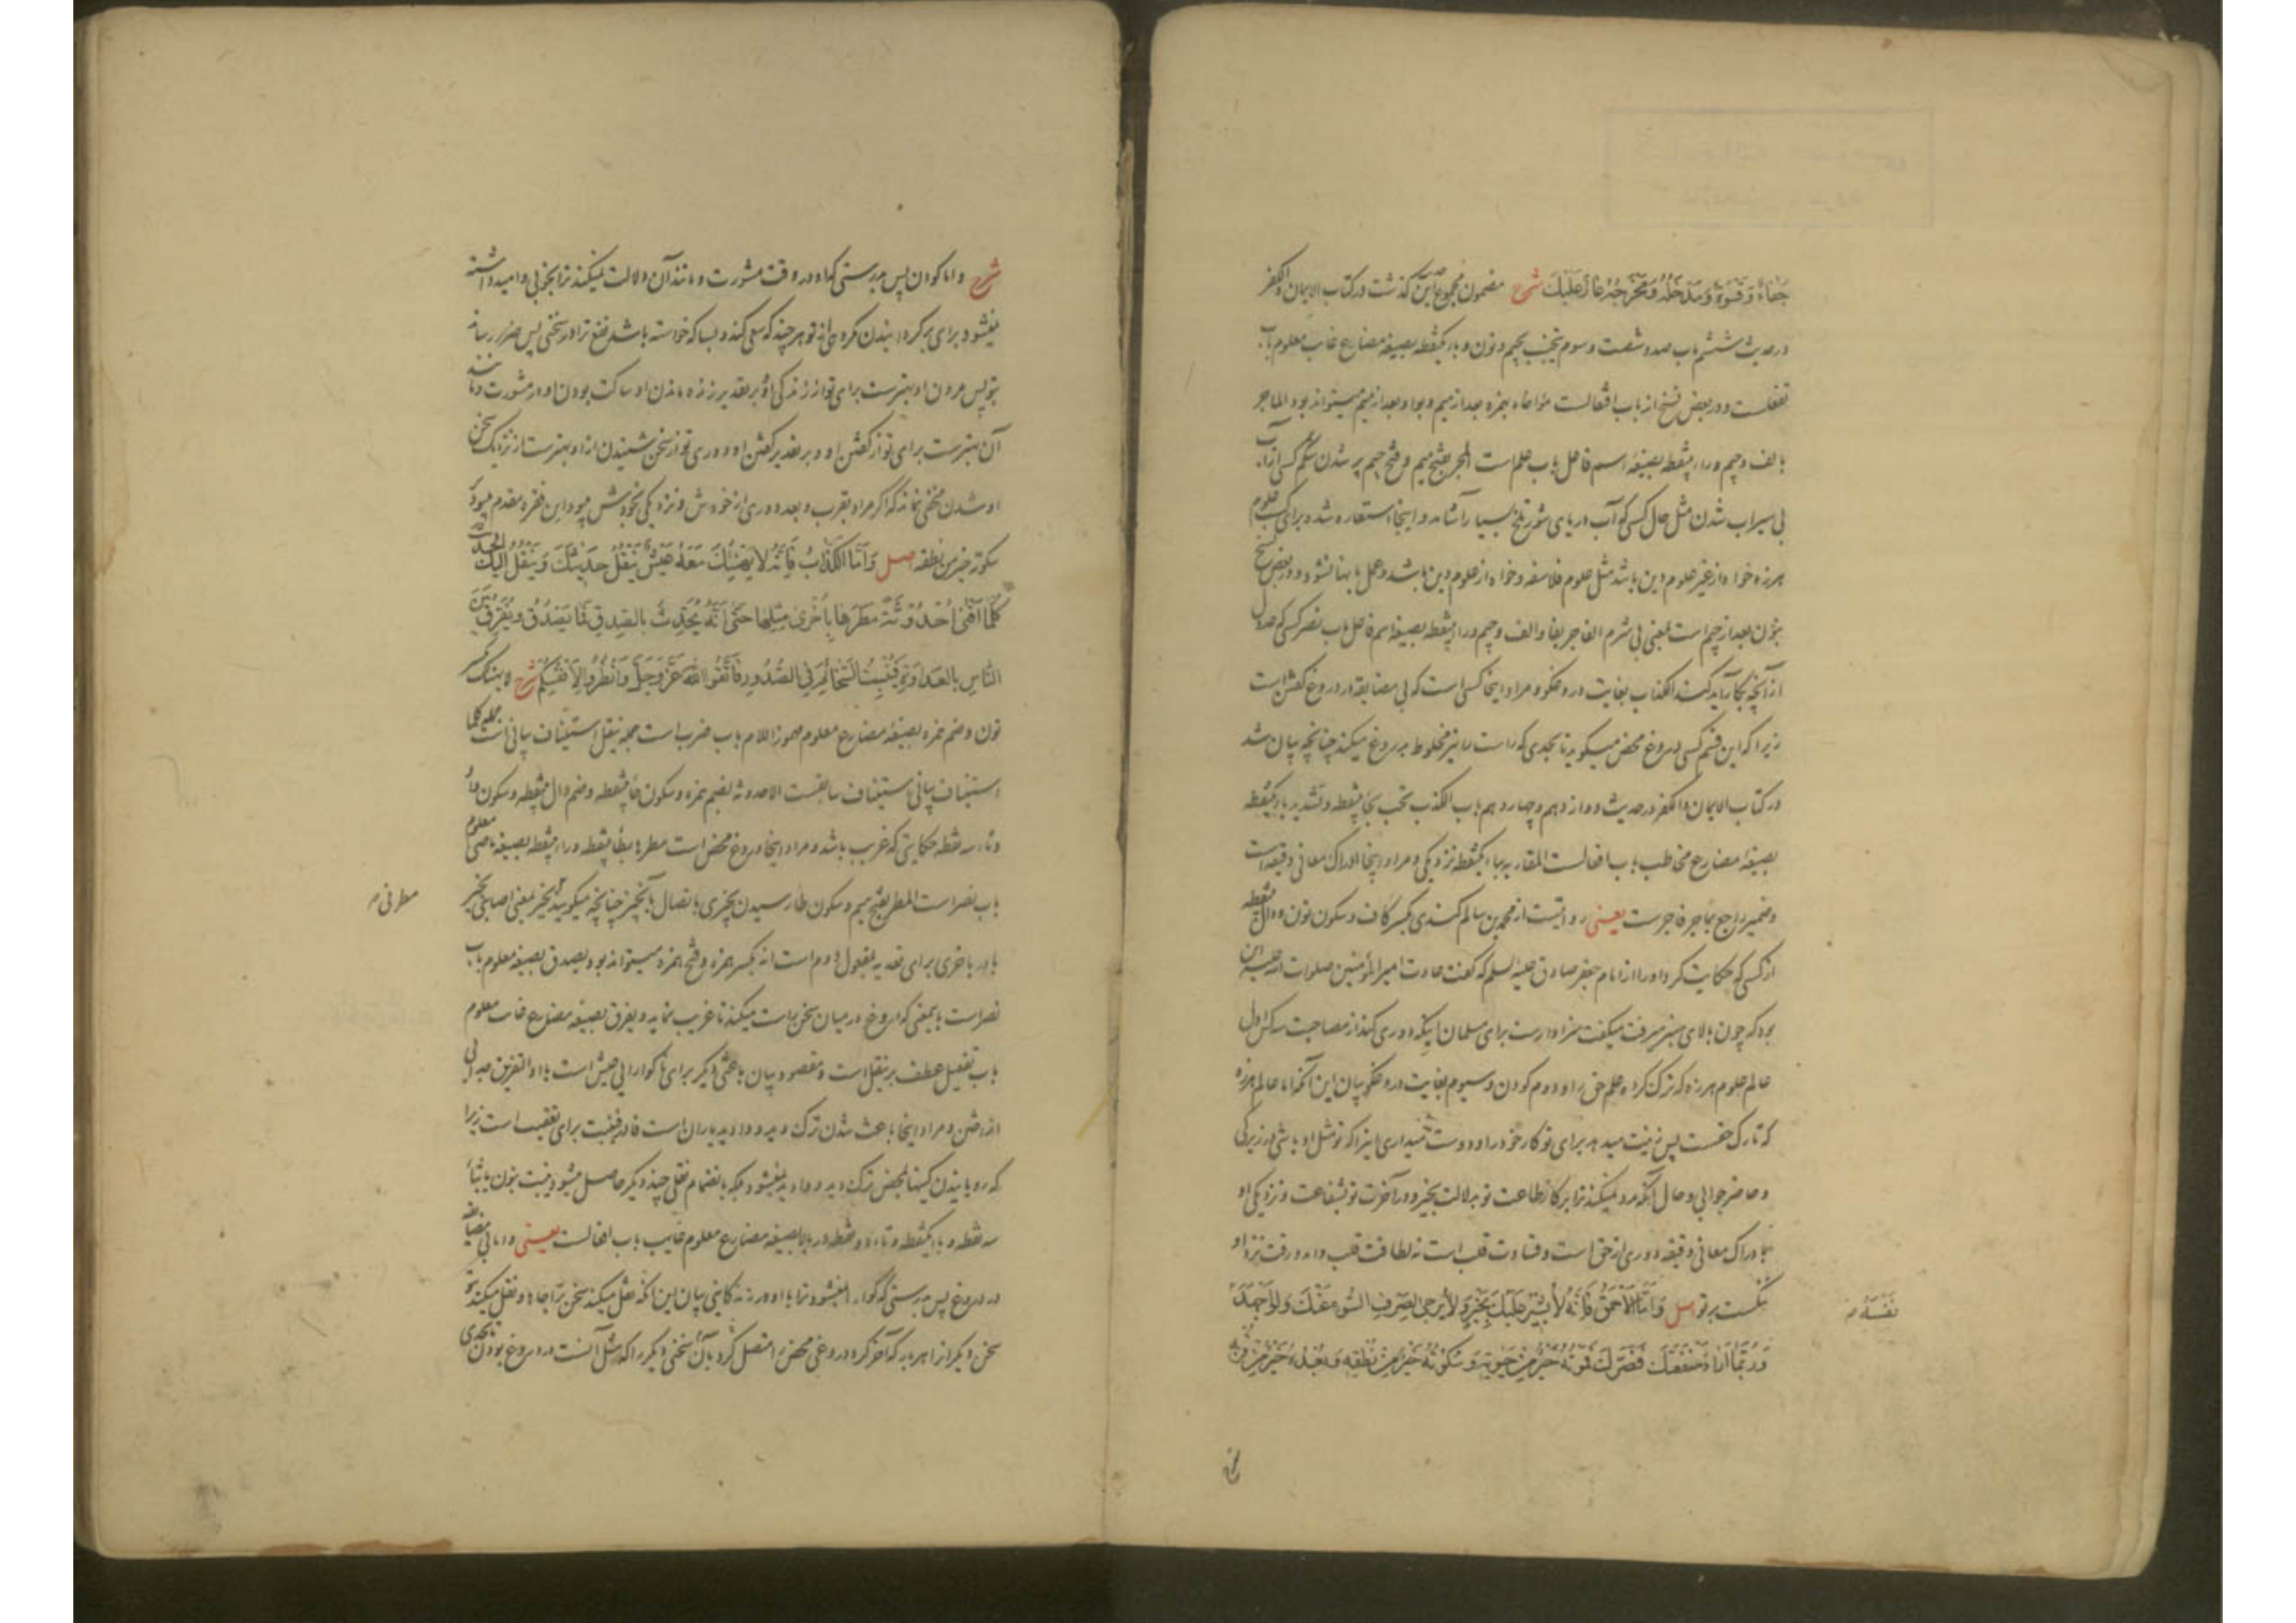 جَفَاءٌ وَقَسْوَةٌ وَمَدْخَلُهُ وَمَخْرَجُهُ عَارٌ عَلَيْكَ شرح مضمون مجموع این گذشت در کتاب الایمان والکفر
در حدیث ششم باب صد و شصت و سوم یجتنب بجیم و نون و باء یکنقطه بصیغه مضارع غایب معلوم باب
تفعلست و در بعض نسخ از باب افتعالست مؤاخاه بهمزه بعد از میم و بواو بعد از میم میتواند بود الماجر
بالف و جیم و راء بینقطه بصیغه اسم فاعل باب علم است المجر بفتح میم و فتح جیم پر شدن شکم کسی از آب
بی سیراب شدن مثل حال کسی که آب دریای شور تلخ بسیار آشامد و اینجا استعاره شده برای کسب علوم
هرزه خواه از غیر علوم دین باشد مثل علوم فلاسفه و خواه از علوم دین باشد و عمل بآنها نشود و در بعض نسخ
بنون بعد از جیم است بمعنی بی شرم الفاجر بفا و الف و جیم و راء بینقطه بصیغه اسم فاعل باب نصر کسی که عدول
از آنچه بکار آید کند الکذاب بغایت دروغگو و مراد اینجا کسی است که بی مضایقه در دروغ گفتن است
زیرا که این قسم کسی دروغ محض میگوید تا بحدی که راست را نیز مخلوط بدروغ میکند چنانچه بیان شد
در کتاب الایمان والکفر در حدیث دوازدهم و چهاردهم باب الکذب تحب بحاء بینقطه و تشدید باء یکنقطه
بصیغه مضارع مخاطب باب افعالست المقاربه بباء یکنقطه نزدیکی و مراد اینجا ادراک معانی دقیقه است
و ضمیر راجع بماجر فاجرست یعنی روایتست از محمد بن سالم کندی بکسر کاف و سکون نون و دال بینقطه
از کسی که حکایت کرد او را از امام جعفر صادق علیه السلم که گفت عادت امیر المؤمنین صلوات الله علیه این
بود که چون بالای منبر میرفت میگفت سزاوارست برای مسلمان اینکه دوری کند از مصاحبت سه کس اول
عالم علوم هرزه که ترک کرده علم حق را و دوم کودن و سیوم بغایت دروغگو بیان این آنکه اما عالم هرزه
که تارک حقست پس زینت میدهد برای تو کار خود را و دوست میدارد اینرا که تو مثل او باشی در زیرکی
و حاضر جوابی و حال آنکه مدد نمیکند ترا بر کار طاعت تو بدلالت بخیر و در آخرت تو بشفاعت و نزدیکی او
بادراک معانی دقیقه دوری از حق است و قساوت قلب است نه لطافت قلب و آمد و رفت نزد او
ننگست بر تو اصل وَاَمَّا الْاَحْمَقُ فَاِنَّهُ لَا يُشِيْرُ عَلَيْكَ بِخَيْرٍ وَلَا يُرْجٰى لِصَرْفِ السُّوءِ عَنْكَ وَلَوْ اَجْهَدَ
نَفْسَهُ م
وَرُبَّمَا اَرَادَ مَنْفَعَتَكَ فَضَرَّكَ فَمَوْتُهُ خَيْرٌ مِنْ حَيٰوتِهِ وَسُكُوْتُهُ خَيْرٌ مِنْ نُطْقِهِ وَبُعْدُهُ خَيْرٌ مِنْ قُرْبِهِ
شرح و اما کودن پس بدرستی که او در وقت مشورت و مانند آن دلالت نمیکند ترا بخوبی و امید داشته
نمیشود برای برگردانیدن مکروهی از تو هر چند که سعی کند و بسا که خواسته باشد نفع ترا در سخنی پس ضرر رساند
بتو پس مردن او بهترست برای تو از زندگی او و بر تقدیر زنده ماندن او ساکت بودن او در مشورت و مانند
آن بهترست برای تو از گفتن او و بر تقدیر گفتن او دوری تو از سخن شنیدن از او بهترست از نزدیک سخن
او شدن مخفی نماند که اگر مراد بقرب و بعد دوری از خودش و نزدیکی بخودش میبود این فقره مقدم میبود بر
سکوته خیر من نطقه اصل وَاَمَّا الْكَذَّابُ فَاِنَّهُ لَا يَهْنِئُكَ مَعَهُ عَيْشٌ يَنْقُلُ حَدِيْثَكَ وَيَنْقُلُ اِلَيْكَ الْحَدِيْثَ
كُلَّمَا اَفْنٰى اُحْدُوْثَةً مَطَرَهَا بِاُخْرٰى مِثْلِهَا حَتّٰى اَنَّهُ يُحَدِّثُ بِالصِّدْقِ فَمَا يُصَدَّقُ وَيُفَرِّقُ بَيْنَ
النَّاسِ بِالْعَدَاوَةِ فَيُنْبِتُ السَّخَائِمَ فِي الصُّدُوْرِ فَاتَّقُوا اللهَ عَزَّ وَجَلَّ وَانْظُرُوْا لِاَنْفُسِكُمْ شرح لا یهنئک بکسر
نون و ضم همزه بصیغه مضارع معلوم مهموز اللام باب ضرب است جمله ینقل استیناف بیانی است جمله کلما
استیناف بیانی استیناف سابقست الاحدوثه بضم همزه و سکون حاء بینقطه و ضم دال بینقطه و سکون واو
و ثاء سه نقطه حکایتی که غریب باشد و مراد اینجا دروغ محض است مطرها بطاء بینقطه و راء بینقطه بصیغه ماضی معلوم
باب نصر است المطر بفتح میم و سکون طا رسیدن بچیزی باتصال بآنچیز چنانچه میگوید بمعنی اصابنی بخیر
مطرنی م
باء در باخری برای تعدیه بمفعول دوم است انه بکسر همزه و فتح همزه میتواند بود یصدق بصیغه معلوم باب
نصر است باینمعنی که دروغ در میان سخن راست میکند تا غریب نماید و یفرق بصیغه مضارع غایب معلوم
باب تفعیل عطف بر ینقل است و مقصود بیان باعثی دیگر برای ناگوارایی عیش است با او التفریق جدایی
انداختن و مراد اینجا باعث شدن ترک دید و وادید یاران است فا در فینبت برای تعقیب است زیرا
که رویانیدن کینها بمحض ترک دید و وادید نمیشود بلکه بانضمام نقلی چند دیگر حاصل میشود ینبت بنون یا بثاء
سه نقطه و باء یکنقطه و تاء دو نقطه در بالا بصیغه مضارع معلوم غایب باب افعالست یعنی و اما بی مضایقه
در دروغ پس بدرستی که گوارا نمیشود ترا با او زندگانی بیان این آنکه نقل میکند سخن ترا جاها و نقل میکند بتو
سخن دیگر از هر بار که آخر کرد دروغی محض را متصل کرد بآن سخنی دیگر را که مثل آنست در دروغ بودن تا بحدی